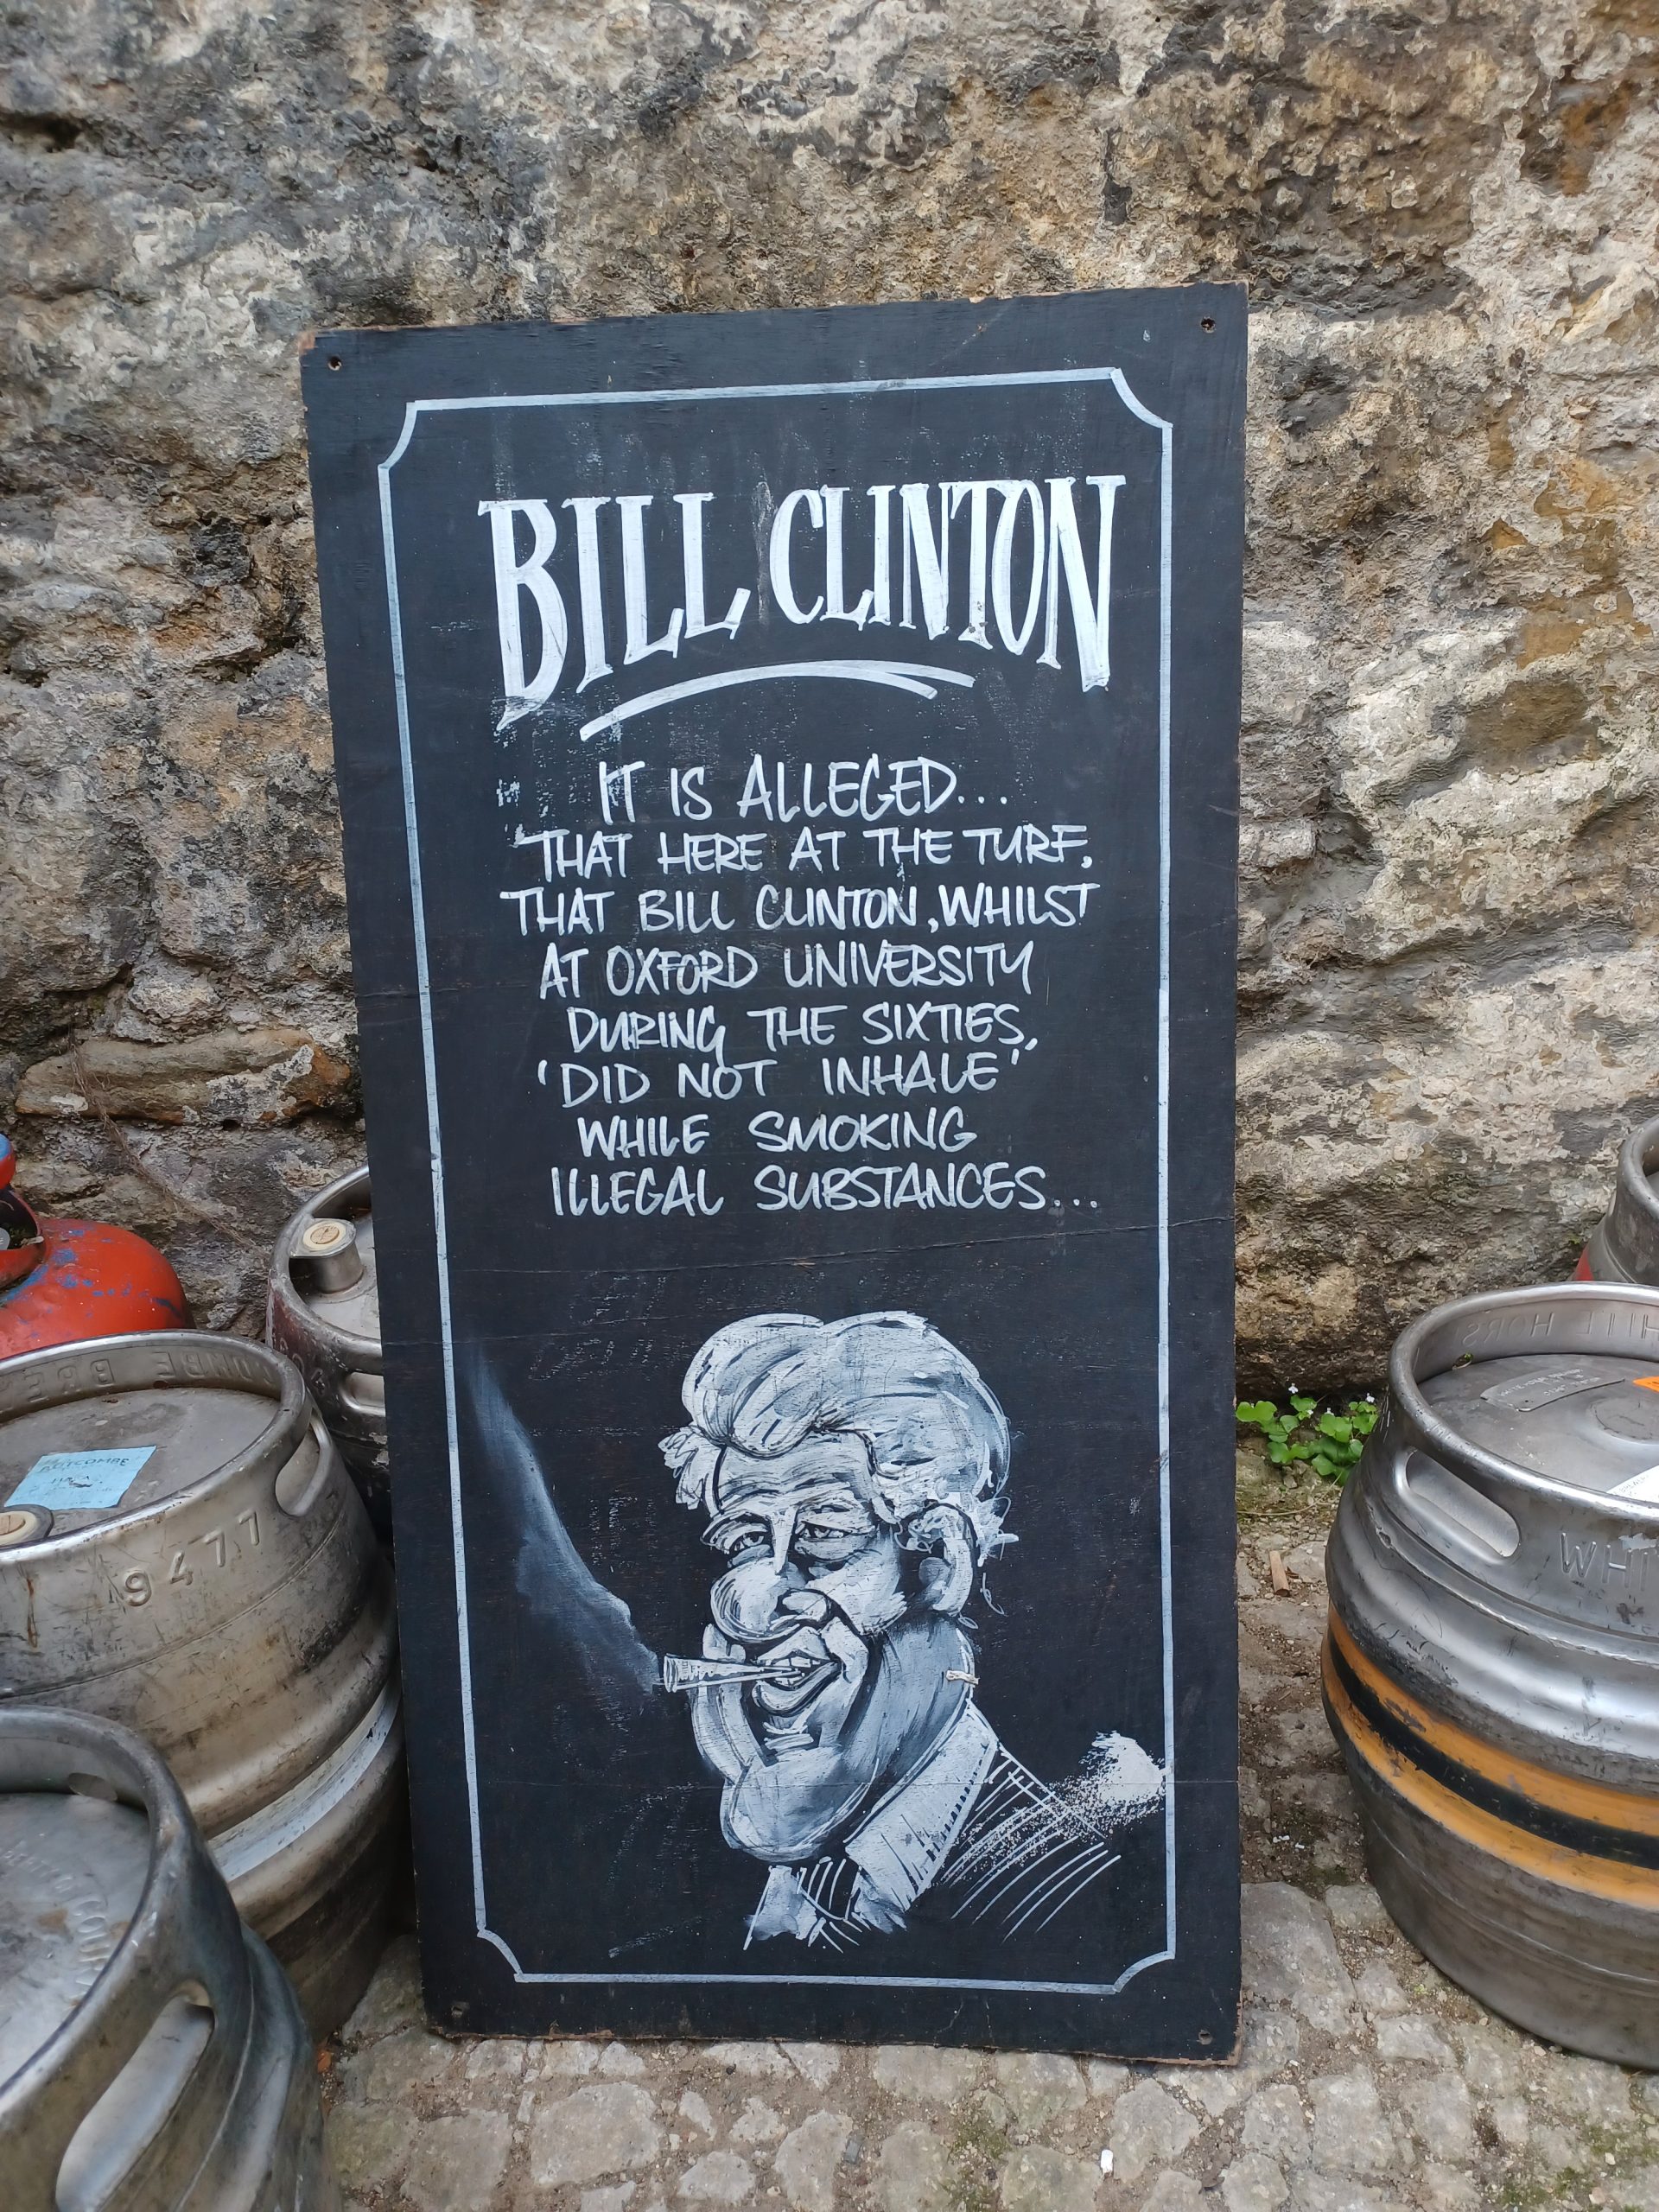 BILL CLINTON
IT IS ALLEGED...
THAT HERE AT THE TURF,
THAT BILL CLINTON, WHILST
AT OXFORD UNIVERSITY
DURING THE SIXTIES,
'DID NOT INHALE'
WHILE SMOKING
ILLEGAL SUBSTANCES...
BUTCOMBE
9477
WHI